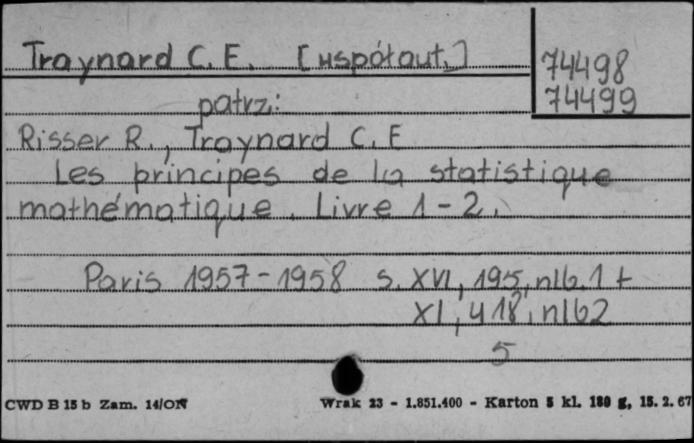 Traynard C. E. [współaut.]
74498
74499
patrz:
Risser R., Traynard C. E
Les principes de la statistique
mathématique. Livre 1-2.
Paris 1957-1958 s. XVI, 195, nlb. 1 +
XI, 418, nlb2
5
CWD B 15 b Zam. 14/ON
Wrak 23 - 1.851.400 - Karton 5 kl. 180 g, 15. 2. 67